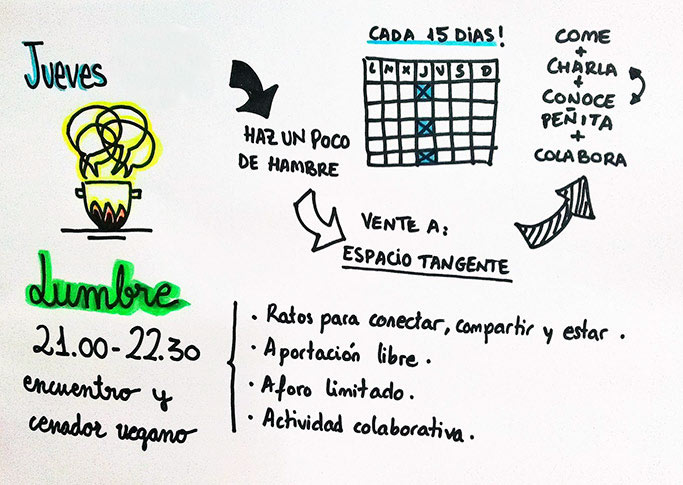 Jueves
Lumbre
21.00-22.30
encuentro y
cenador vegano
HAZ UN POCO
DE HAMBRE
CADA 15 DIAS!
L M X J V S D
VENTE A:
ESPACIO TANGENTE
COME
+
CHARLA
+
CONOCE
PEÑITA
+
COLABORA
· Ratos para conectar, compartir y estar.
· Aportación libre.
· Aforo limitado.
· Actividad colaborativa.